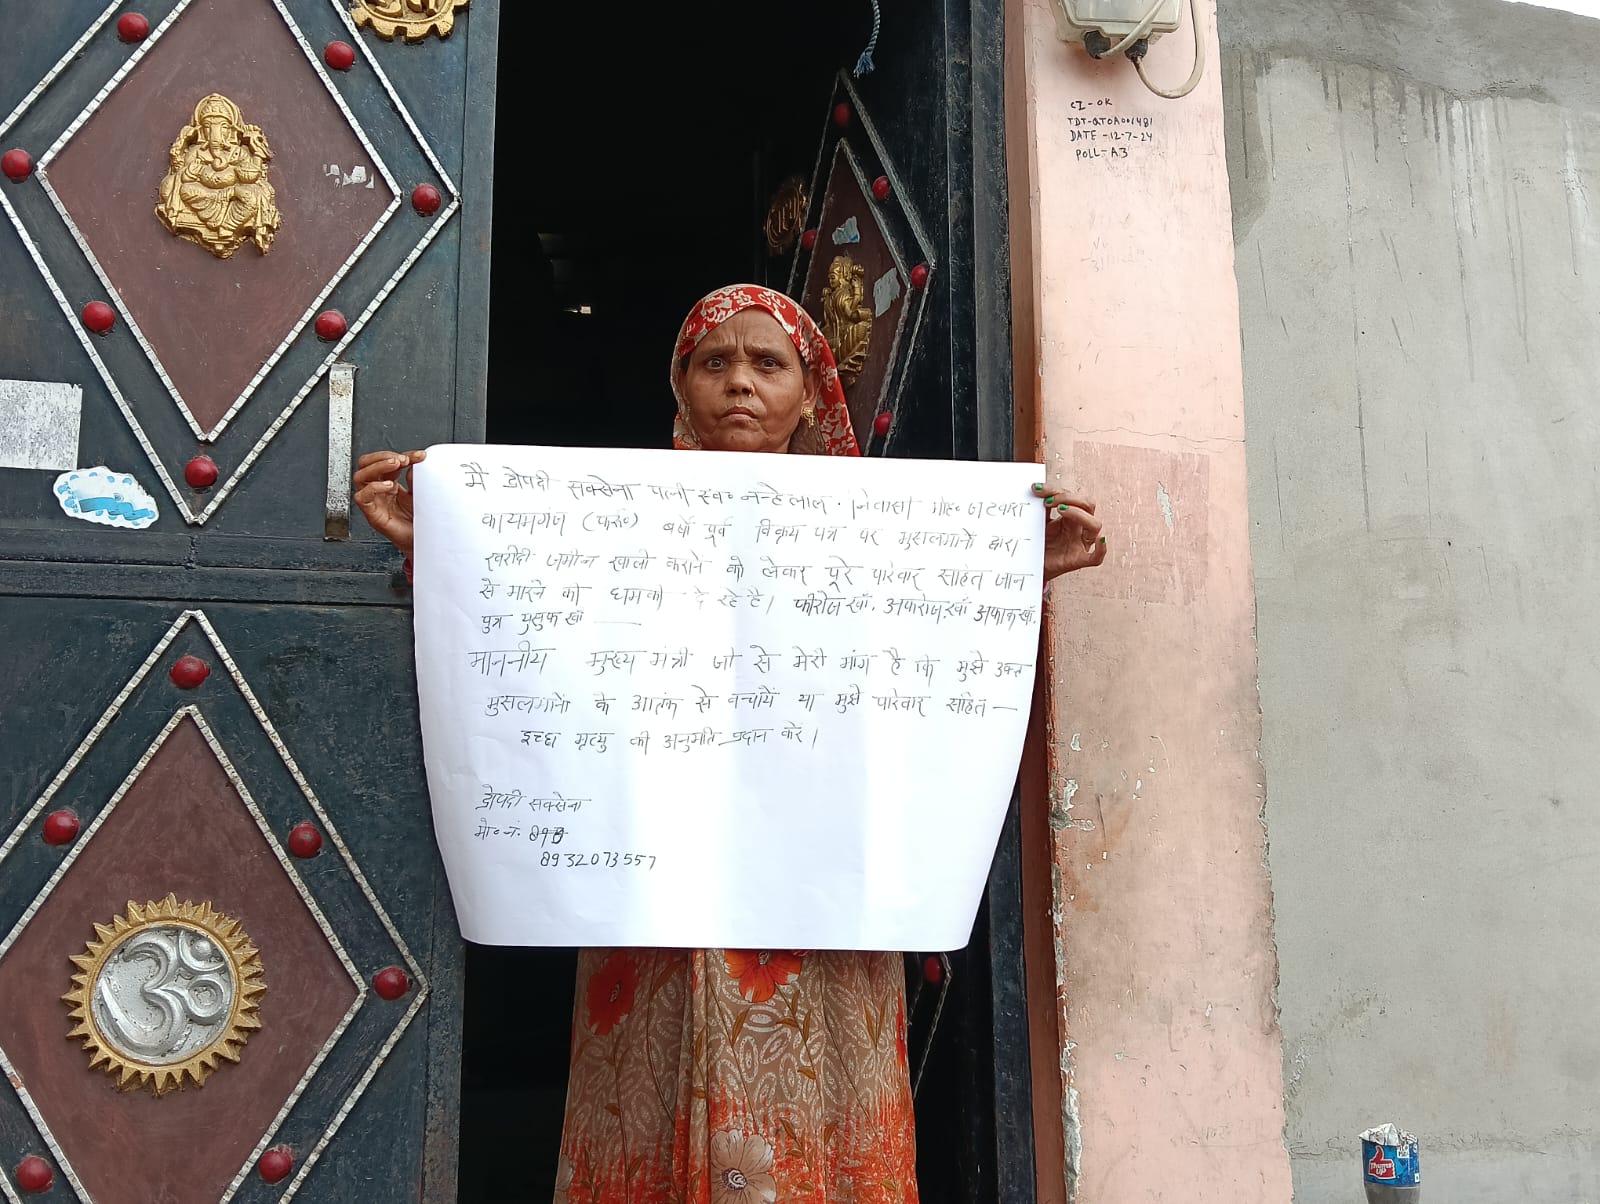 CI-OK
TDT-QT0A001481
DATE -12-7-24
POLL-A3
मै द्रोपदी सक्सेना पत्नी स्व० नन्हेलाल . निवासी मोह० जटवारा
कायमगंज (फर्रु०) बर्षो पूर्व विक्रय पत्र पर मुसलमानों द्वारा
खरीदी जमीन खाली कराने को लेकर पूरे परिवार सहित जान
से मारने की धमकी दे रहे है। फीरोज खाँ. अफरोज खाँ अफाक खाँ.
पुत्र युसुफ खाँ ——
माननीय मुख्य मंत्री जी से मेरी मांग है कि मुझे उक्त
मुसलमानों के आतंक से बचायें या मुझे परिवार सहित —
इच्छा मृत्यु की अनुमति प्रदान करें।
द्रोपदी सक्सेना
मो० नं.
8932073557
ॐ
Thums Up